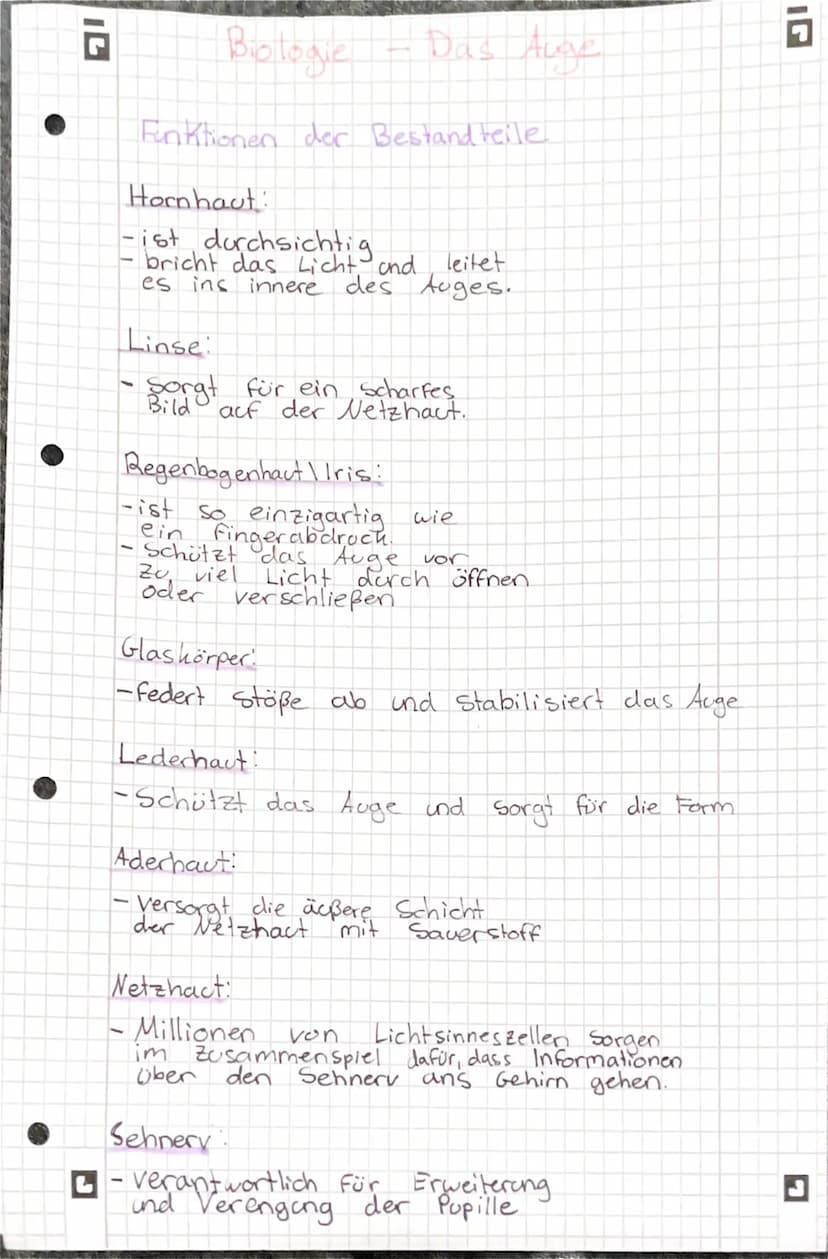 Biologie - Das Auge
Funktionen der Bestandteile
Hornhaut:
- ist durchsichtig
- bricht das Licht und leitet
es ins innere des Auges.
Linse:
- sorgt für ein scharfes
Bild auf der Netzhaut.
Regenbogenhaut\Iris:
- ist so einzigartig wie
ein Fingerabdruck.
- Schützt das Auge vor
zu viel Licht durch öffnen
oder verschließen
Glaskörper:
- federt Stöße ab und stabilisiert das Auge
Lederhaut:
- Schützt das Auge und sorgt für die Form
Aderhaut:
- Versorgt die äußere Schicht
der Netzhaut mit Sauerstoff
Netzhaut:
- Millionen von Lichtsinneszellen sorgen
im zusammenspiel dafür, dass Informationen
über den Sehnerv ans Gehirn gehen.
Sehnerv:
- verantwortlich für Erweiterung
und Verengung der Pupille